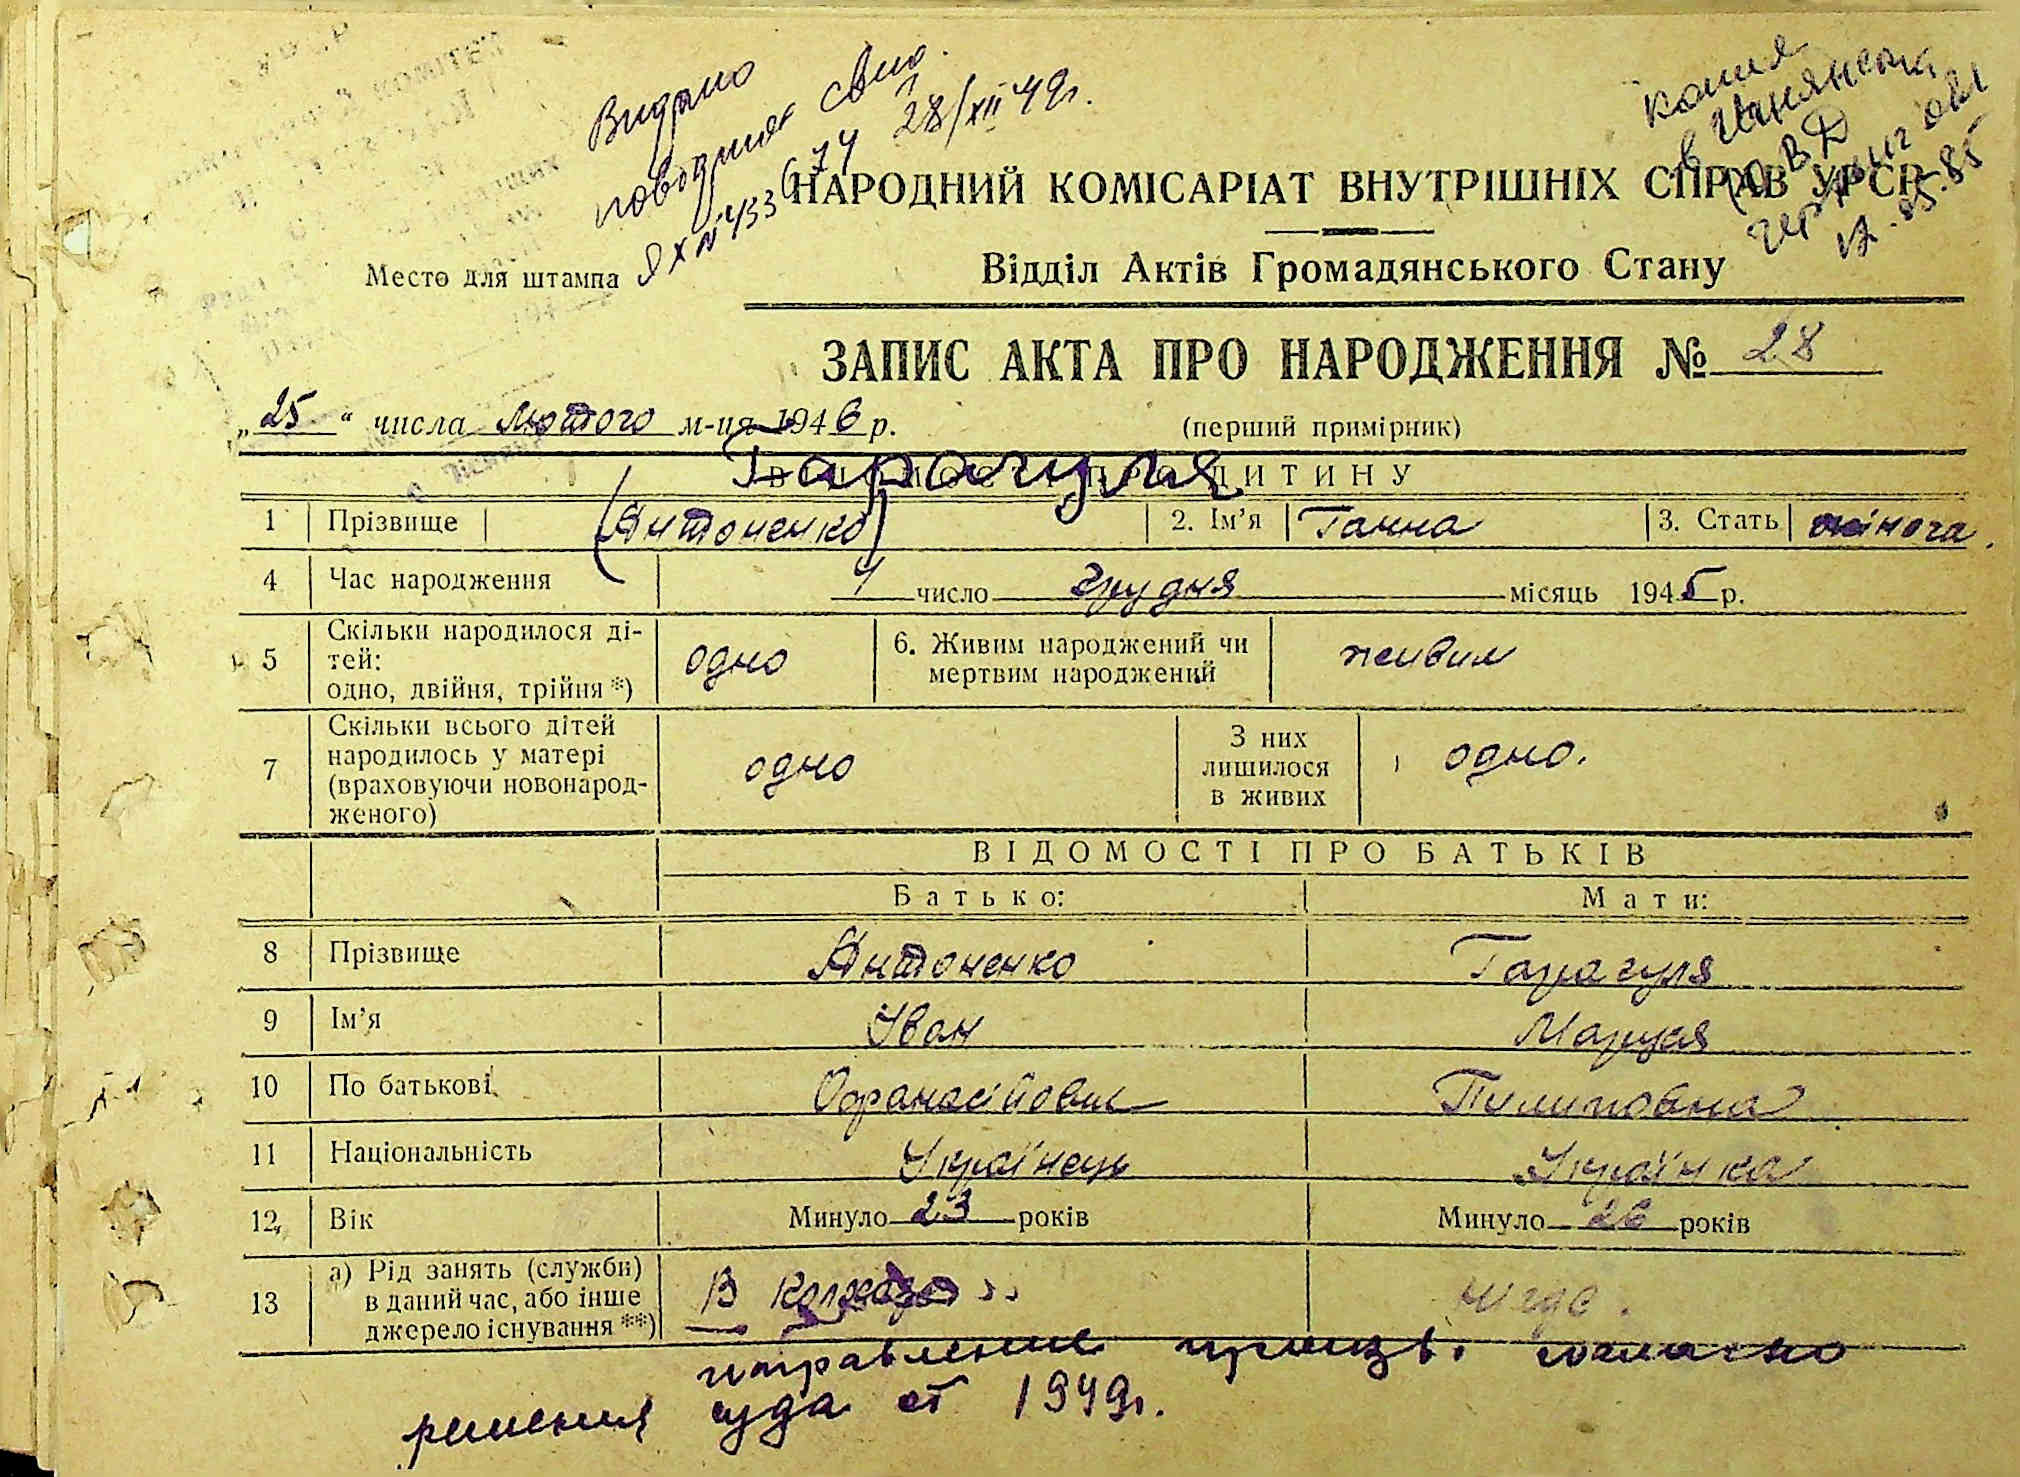 Видано
повторня свид.
ЯХ № 433674 28/XII 49г.
копия
в Ичнянский
РОВД
Черниг обл
12.05.85
НАРОДНИЙ КОМІСАРІАТ ВНУТРІШНІХ СПРАВ УРСР
Место для штампа
Відділ Актів Громадянського Стану
ЗАПИС АКТА ПРО НАРОДЖЕННЯ № 28
„25“ числа лютого м-ця 1946 р. (перший примірник)
ВІДОМОСТІ ПРО ДИТИНУ
Тарагуля
1 Прізвище (Антоненко) 2. Ім’я Ганна 3. Стать жіноча.
4 Час народження 4 число грудня місяць 1945 р.
5 Скільки народилося ді-
тей:
одно, двійня, трійня *) одно 6. Живим народжений чи
мертвим народжений живим
7 Скільки всього дітей
народилось у матері
(враховуючи новонарод-
женого) одно З них
лишилося
в живих одно.
ВІДОМОСТІ ПРО БАТЬКІВ
Батько: Мати:
8 Прізвище Антоненко Тарагуля
9 Ім’я Іван Маруся
10 По батькові Офанасійович Пилиповна
11 Національність Українець Українка
12 Вік Минуло 23 років Минуло 26 років
13 а) Рід занять (служби)
в даний час, або інше
джерело існування **) В колхозі нігде.
исправление произв. согласно
решения суда от 1949г.